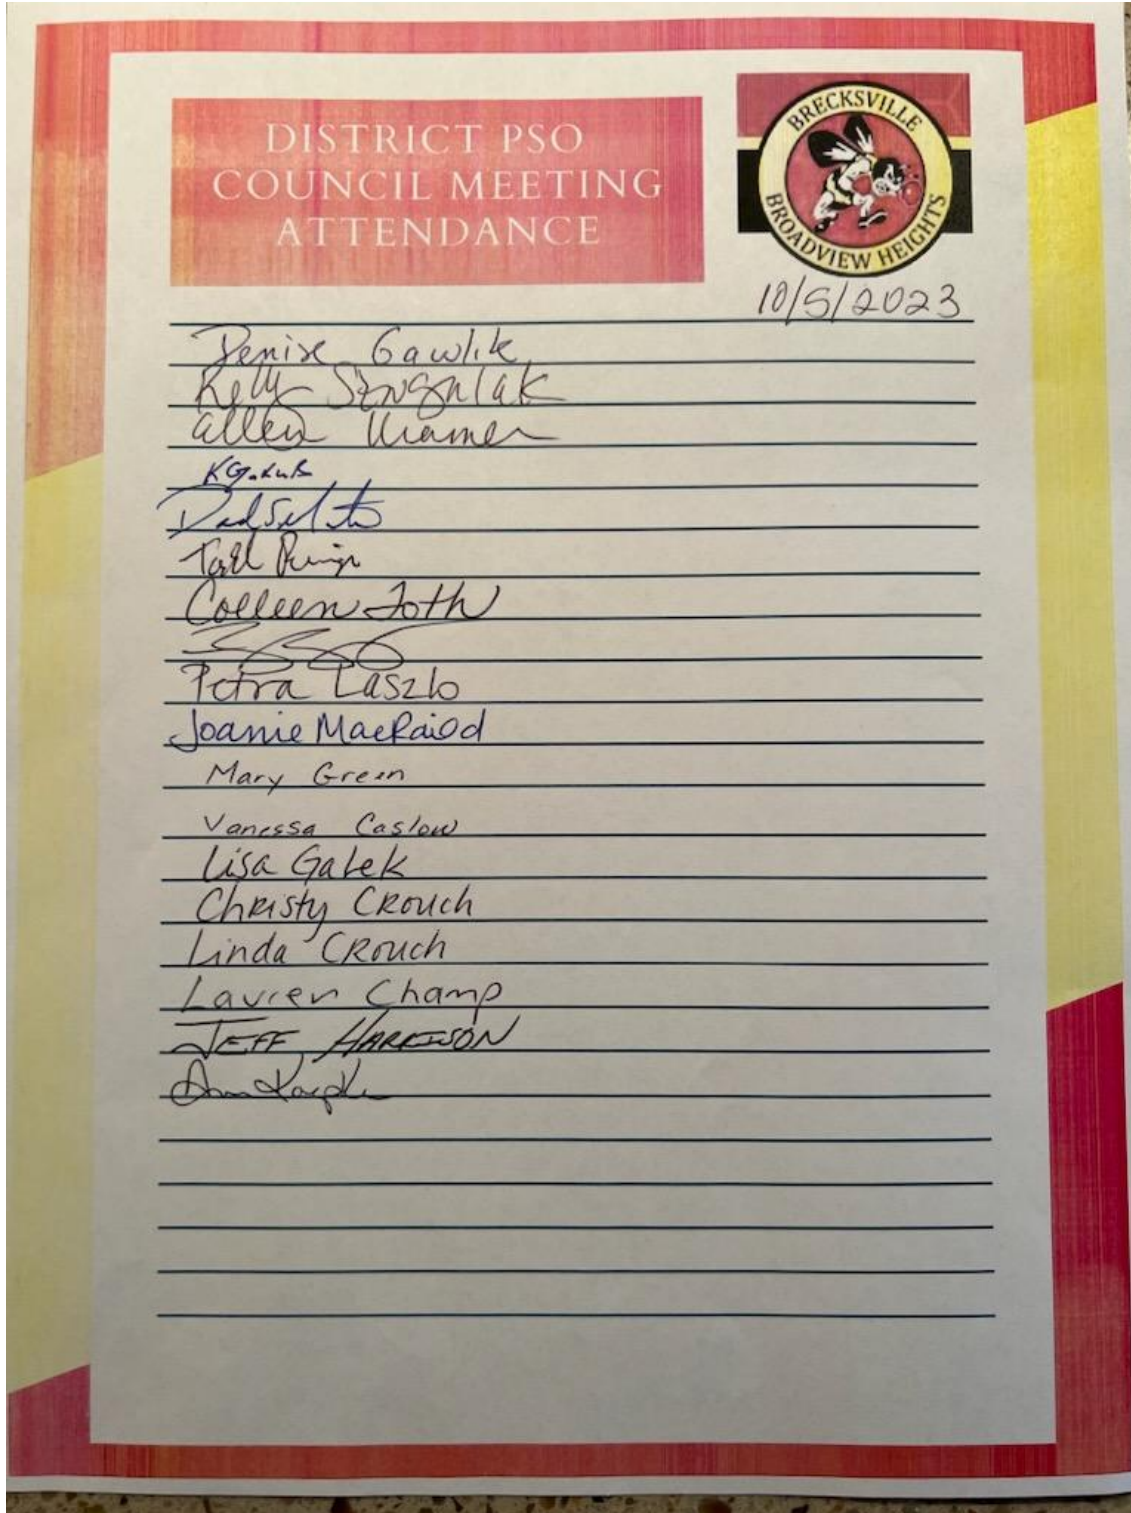 DISTRICT PSO
COUNCIL MEETING
ATTENDANCE
BRECKSVILLE
BROADVIEW HEIGHTS
10/5/2023
Denise Gawlik
Kelly
Allen Kramer
Colleen Toth
Petra Laszlo
Joanie MacRaild
Mary Green
Vanessa Caslow
Lisa Galek
Christy CRouch
Linda CRouch
Lauren Champ
JEFF HARRISON